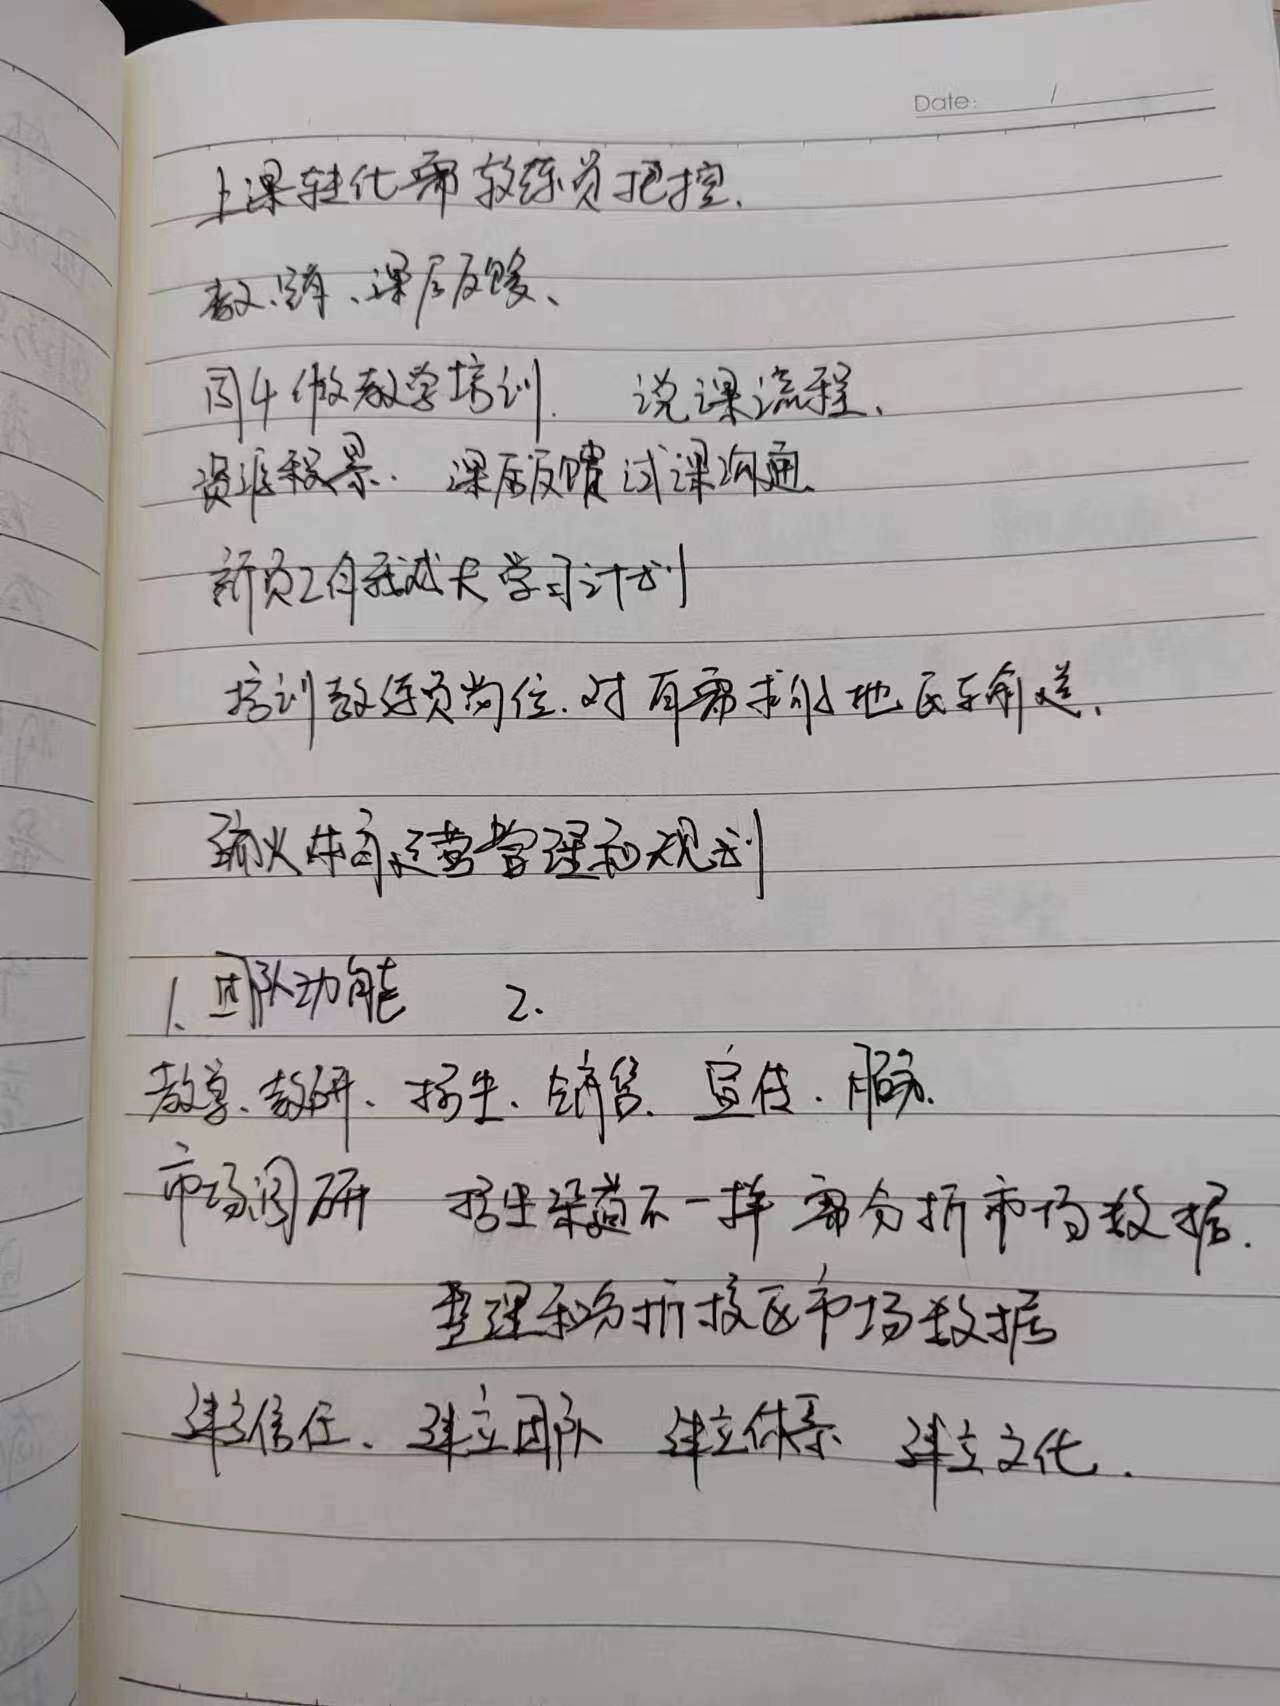 Date: /
上课转化需教练员把控.
教、销、课后反馈、
周4做教学培训. 说课流程、
课后反馈 试课沟通
新员工自我成长学习计划
培训教练员岗位.对有需求的地区输送、
体育运营管理和规划
1、团队功能 2.
教学、教研、招生、销售、宣传、服务、
市场调研 招生渠道不一样 需分析市场数据.
整理和分析校区市场数据
建立信任、建立团队 建立体系 建立文化.